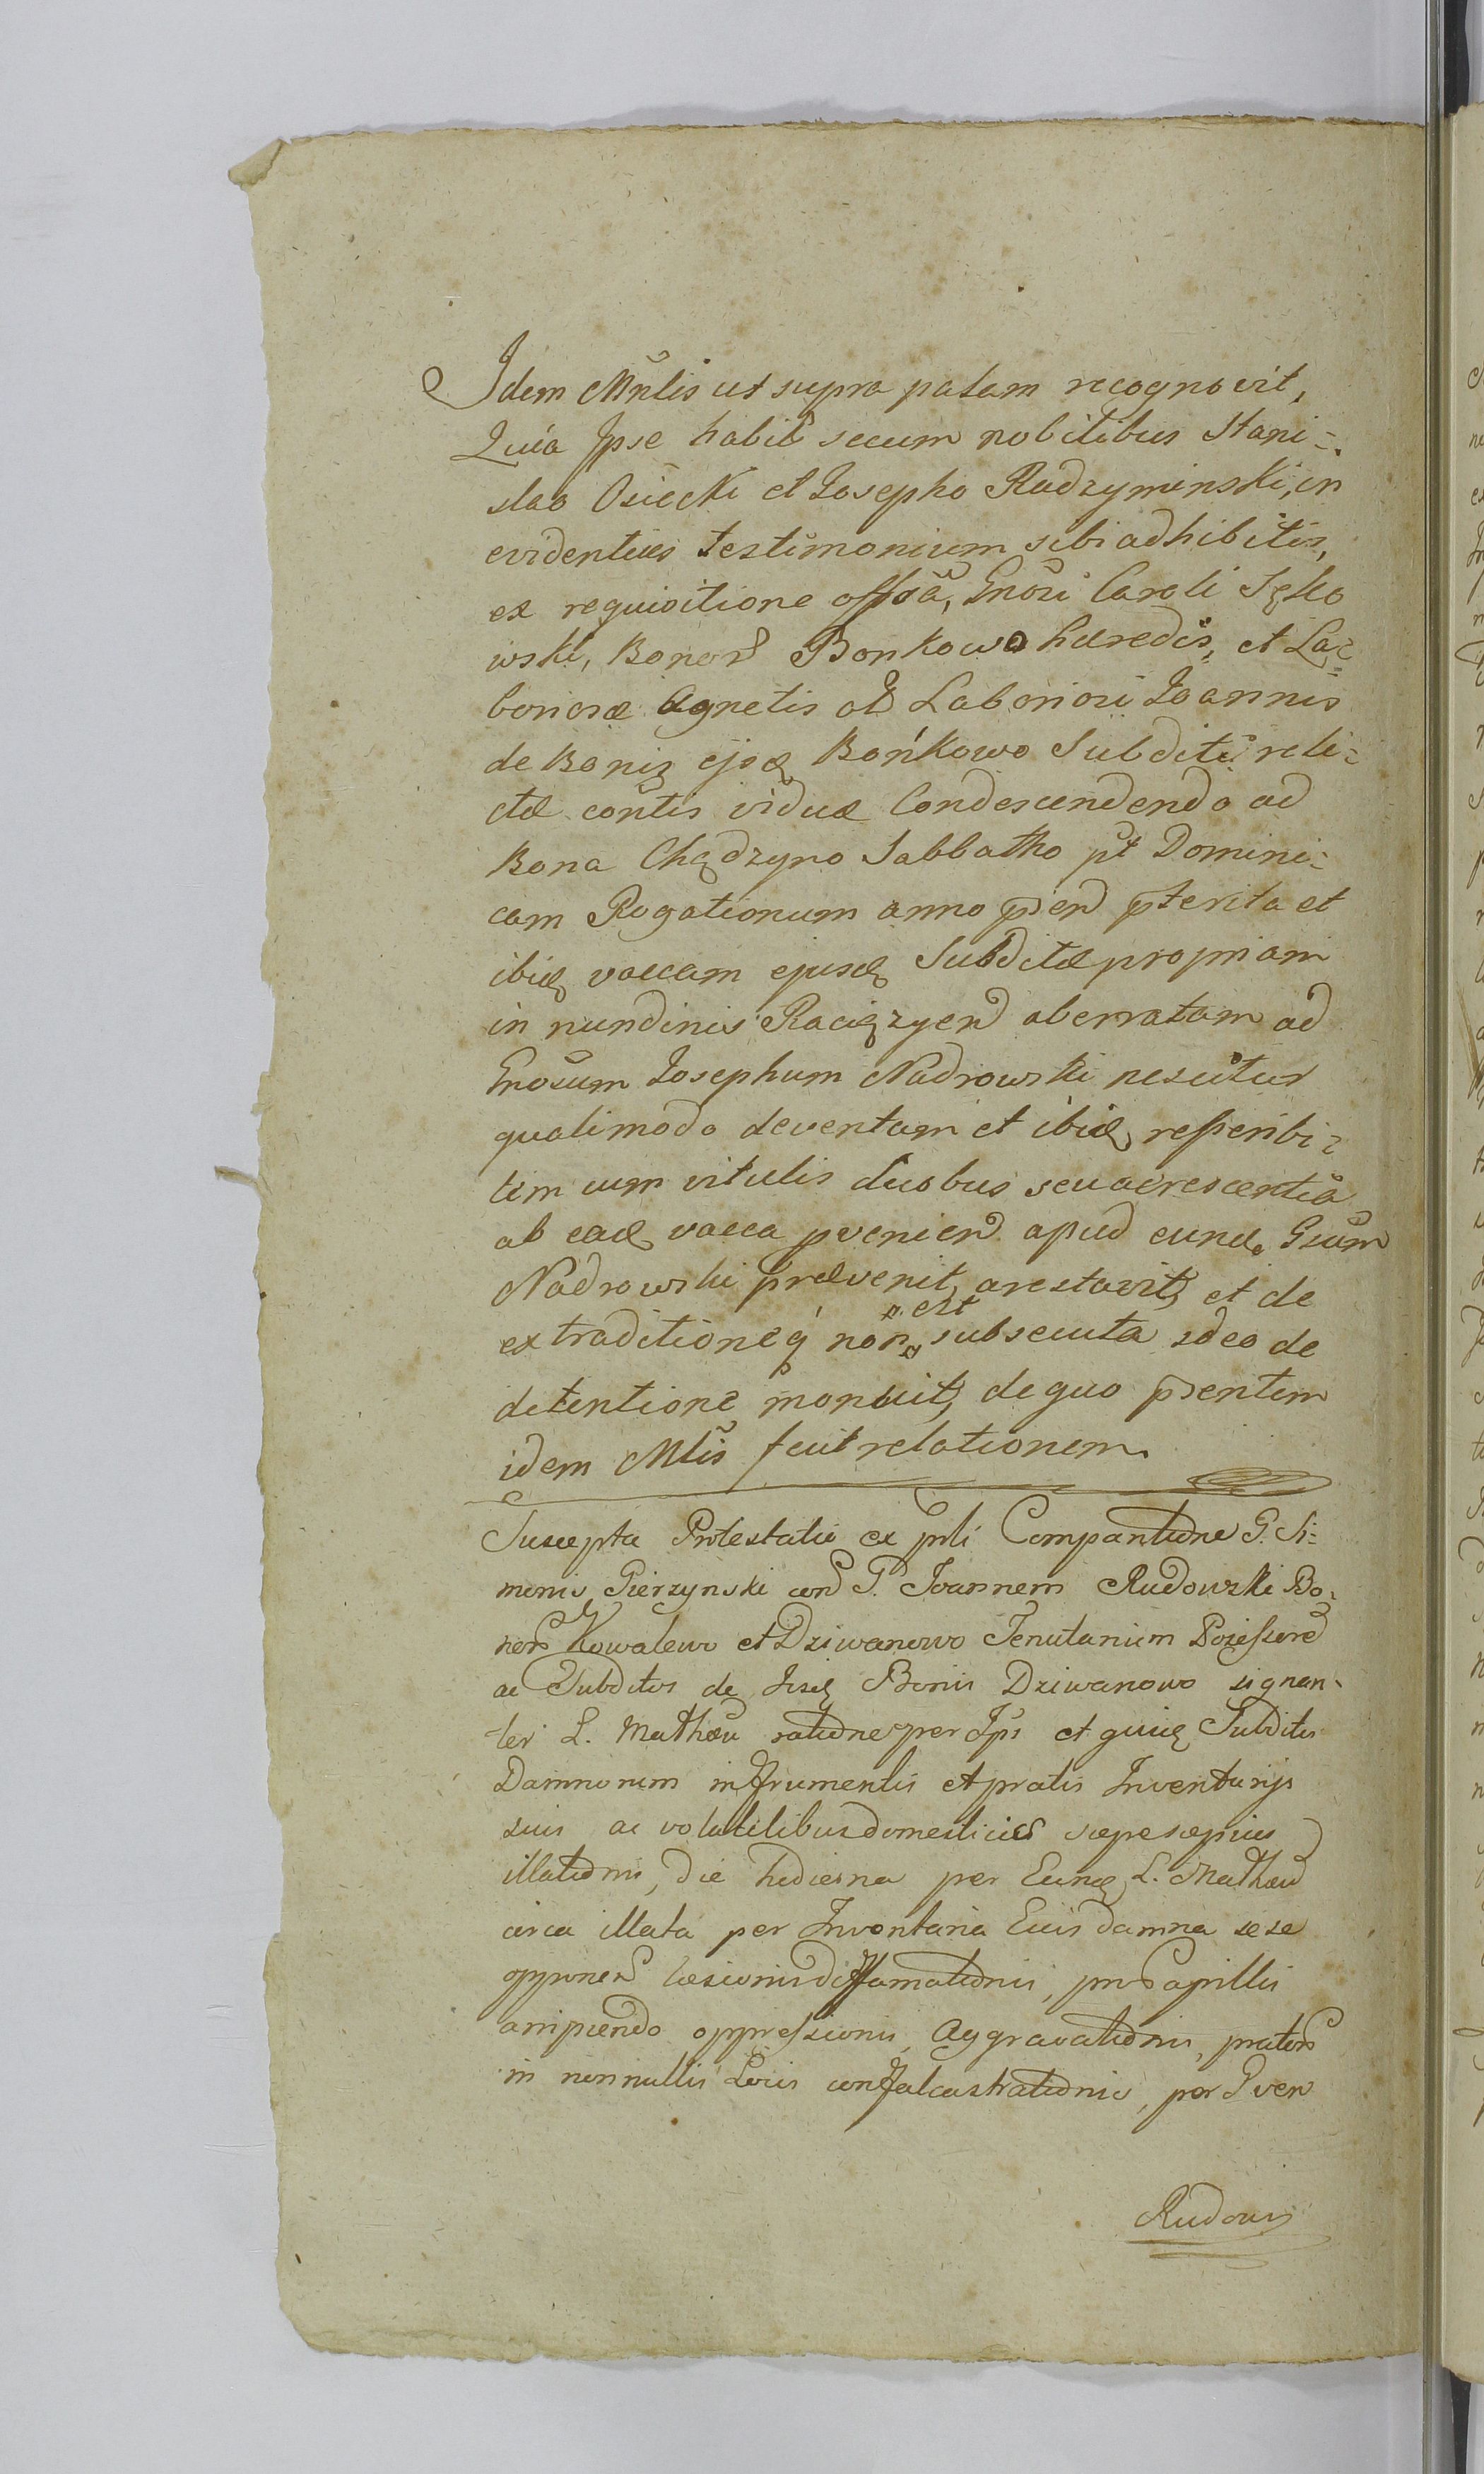 Idem Mñlis ut supra palam recognovit,
Quia Ipse habitis secum nobilibus Stani=
slao Osiecki et Josepho Radzyminski, in
evidentius testimonium sibi adhibitis,
ex requisitione offoa, Gnosi Caroli
wski, Bonor Bonkowo hæredis, et La=
boriosæ Agnetis ol Laboriosi Joannis
de Bonis ejsd Bońkowo Subditi reli=
ctæ contis viduæ Condescendendo ad
Bona Chądzyno Sabbatho pt Domini=
cam Rogationum anno psen pterita et
ibid vaccam ejusd Subditæ propriam
in nundinis Raciązyen aberratam ad
Gnosum Josephum Nadrowski nescitur
qualimodo deventam et ibid
tim cum vitulis duobus seu acrescentia
ab ead vacca pvenien apud eund. Gsum
Nadrowski prævenit, arestavit, et de
extraditione q non est subsecuta ideo de
detentione monuit, de quo psentem
idem Mlis fecit relationem.
Suscepta Protestatio ex prli Comparitione G. Si=
monis Pierzynski con G. Joannem Rudowski Bo=
nor Kowalewo et Dziwanowo Tenutarium Possessore
ac Subditos de Iisd Bonis Dziwanowo signan=
ter L. Mathæu ratione per Ips et Subditos
Damnorum in frumentis et pratis Inventarijs
suis ac volatilibus domesticis sæpe sæpius
illationis, die hodierna per Eund L. Mathæu
circa illata per Inventaria Eius damna sese
opponen læsionis diffamationis, pro Capillis
arripiendo oppressionis, Aggravationis, prator
in nonnullis Locis confalcastrationis, per Gven
Rudows